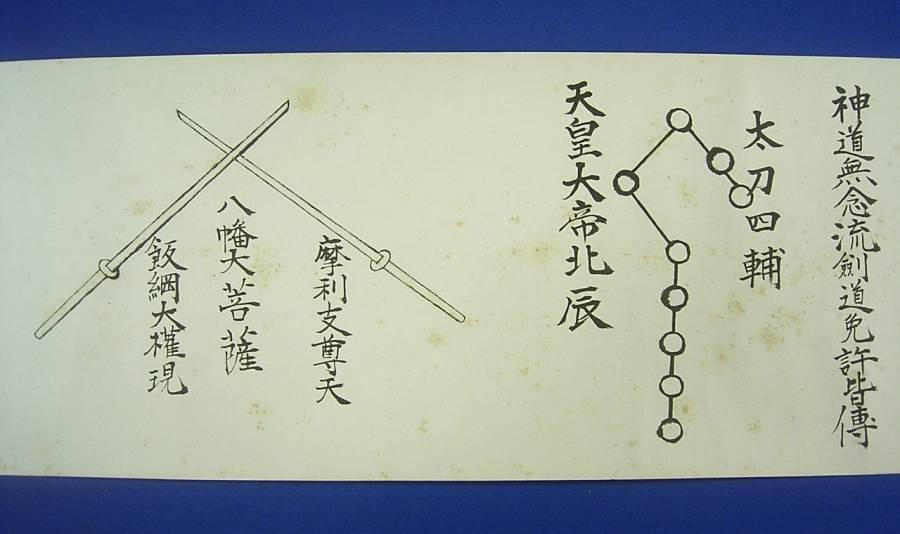 神道無念流劍道免許皆傳
太刀四輔
天皇大帝北辰
摩利支尊天
八幡大菩薩
飯綱大權現